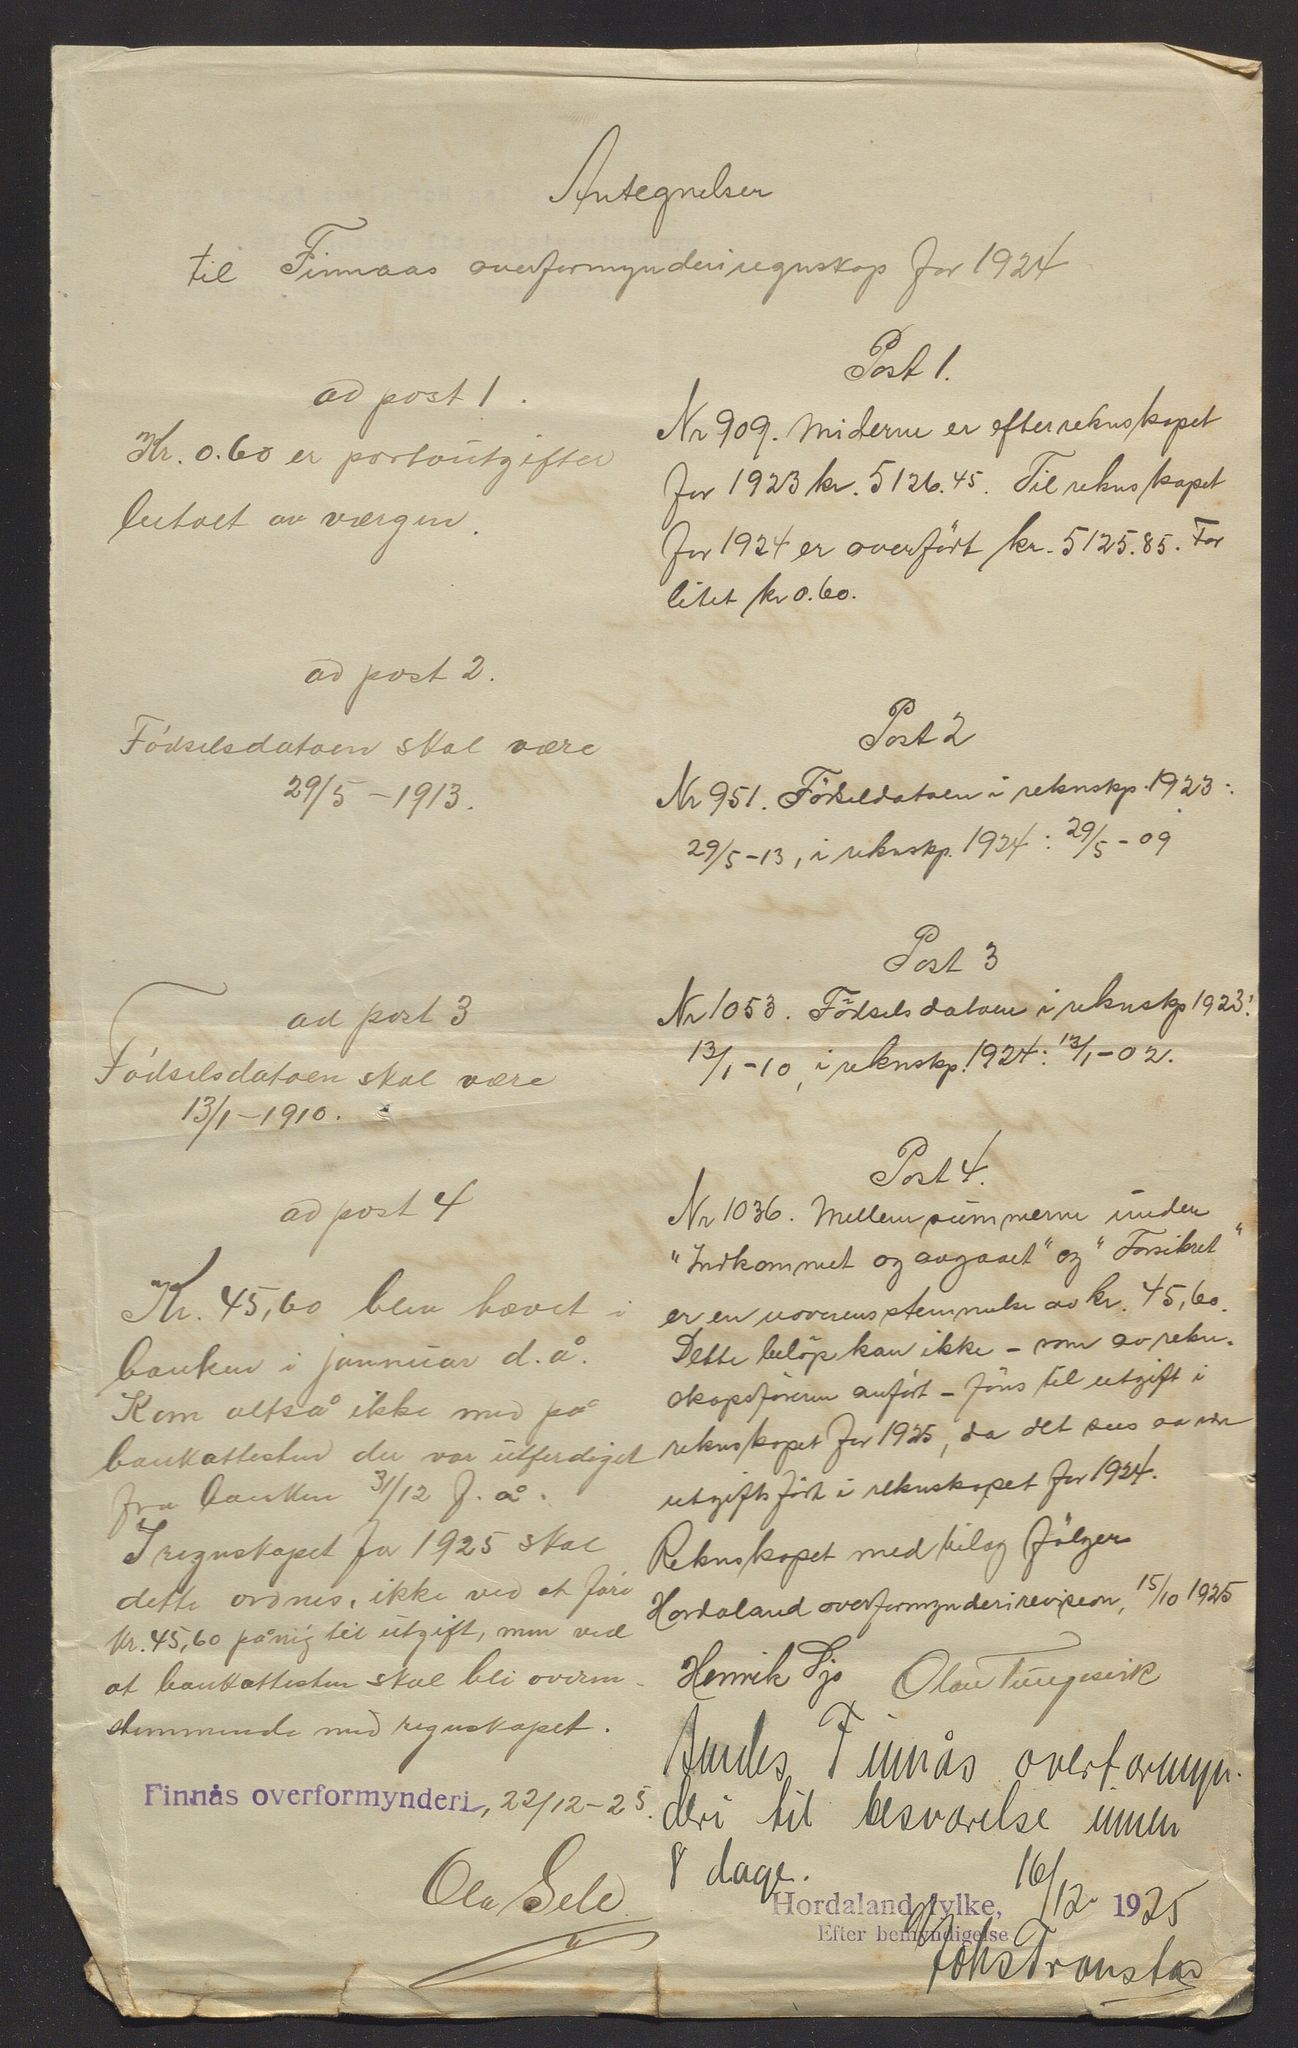 Antegnelser
til Finnaas overformynderiregnskap for 1924
Post 1.
Nr 909. Midlerne er efter rekneskapet
for 1923 kr. 5126.45. Til rekneskapet
for 1924 er overført kr. 5125.85. For
litet kr 0.60.
Post 2
Nr 951. Fødseldatoen i reknskp. 1923:
29/5-13, i reknskp. 1924: 29/5-09
Post 3
Nr 1053. Fødselsdatoen i reknskp 1923:
13/1-10, i reknskp. 1924: 13/1-02.
Post 4.
Nr 1036. Mellem summerne under
"Indkommet og avgaaet" og "Forsikret"
er en uoverensstemmelse av kr. 45,60.
Dette beløp kan ikke - som av rekn-
skapsføreren anført - føres til utgift i
reknskapet for 1925, da det sees aa være
utgiftsført i reknskapet for 1924.
Reknskapet med bilag følger
Hordaland overformynderirevision, 15/10 1925
Henrik Sjo Olav Tungesvik
Sendes Finnås overformyn-
deri til besvarelse innen
8 dage.
16/12 1925
Hordaland fylke,
Efter bemyndigelse
Johs Transtad
ad post 1.
Kr. 0.60 er portoutgifter
betalt av værgen.
ad post 2.
Fødselsdatoen skal være
29/5-1913.
ad post 3
Fødselsdatoen skal være
13/1-1910.
ad post 4
Kr. 45,60 blev hævet i
banken i januar d.å.
Kom altså ikke med på
bankattesten der var utferdiget
fra banken 31/12 f.å.
I regnskapet for 1925 skal
dette ordnes, ikke ved at føre
kr. 45,60 på nig til utgift, men ved
at bankattesten skal bli overen-
stemmende med regnskapet.
Finnås overformynderi, 22/12-25.
Ola Sele